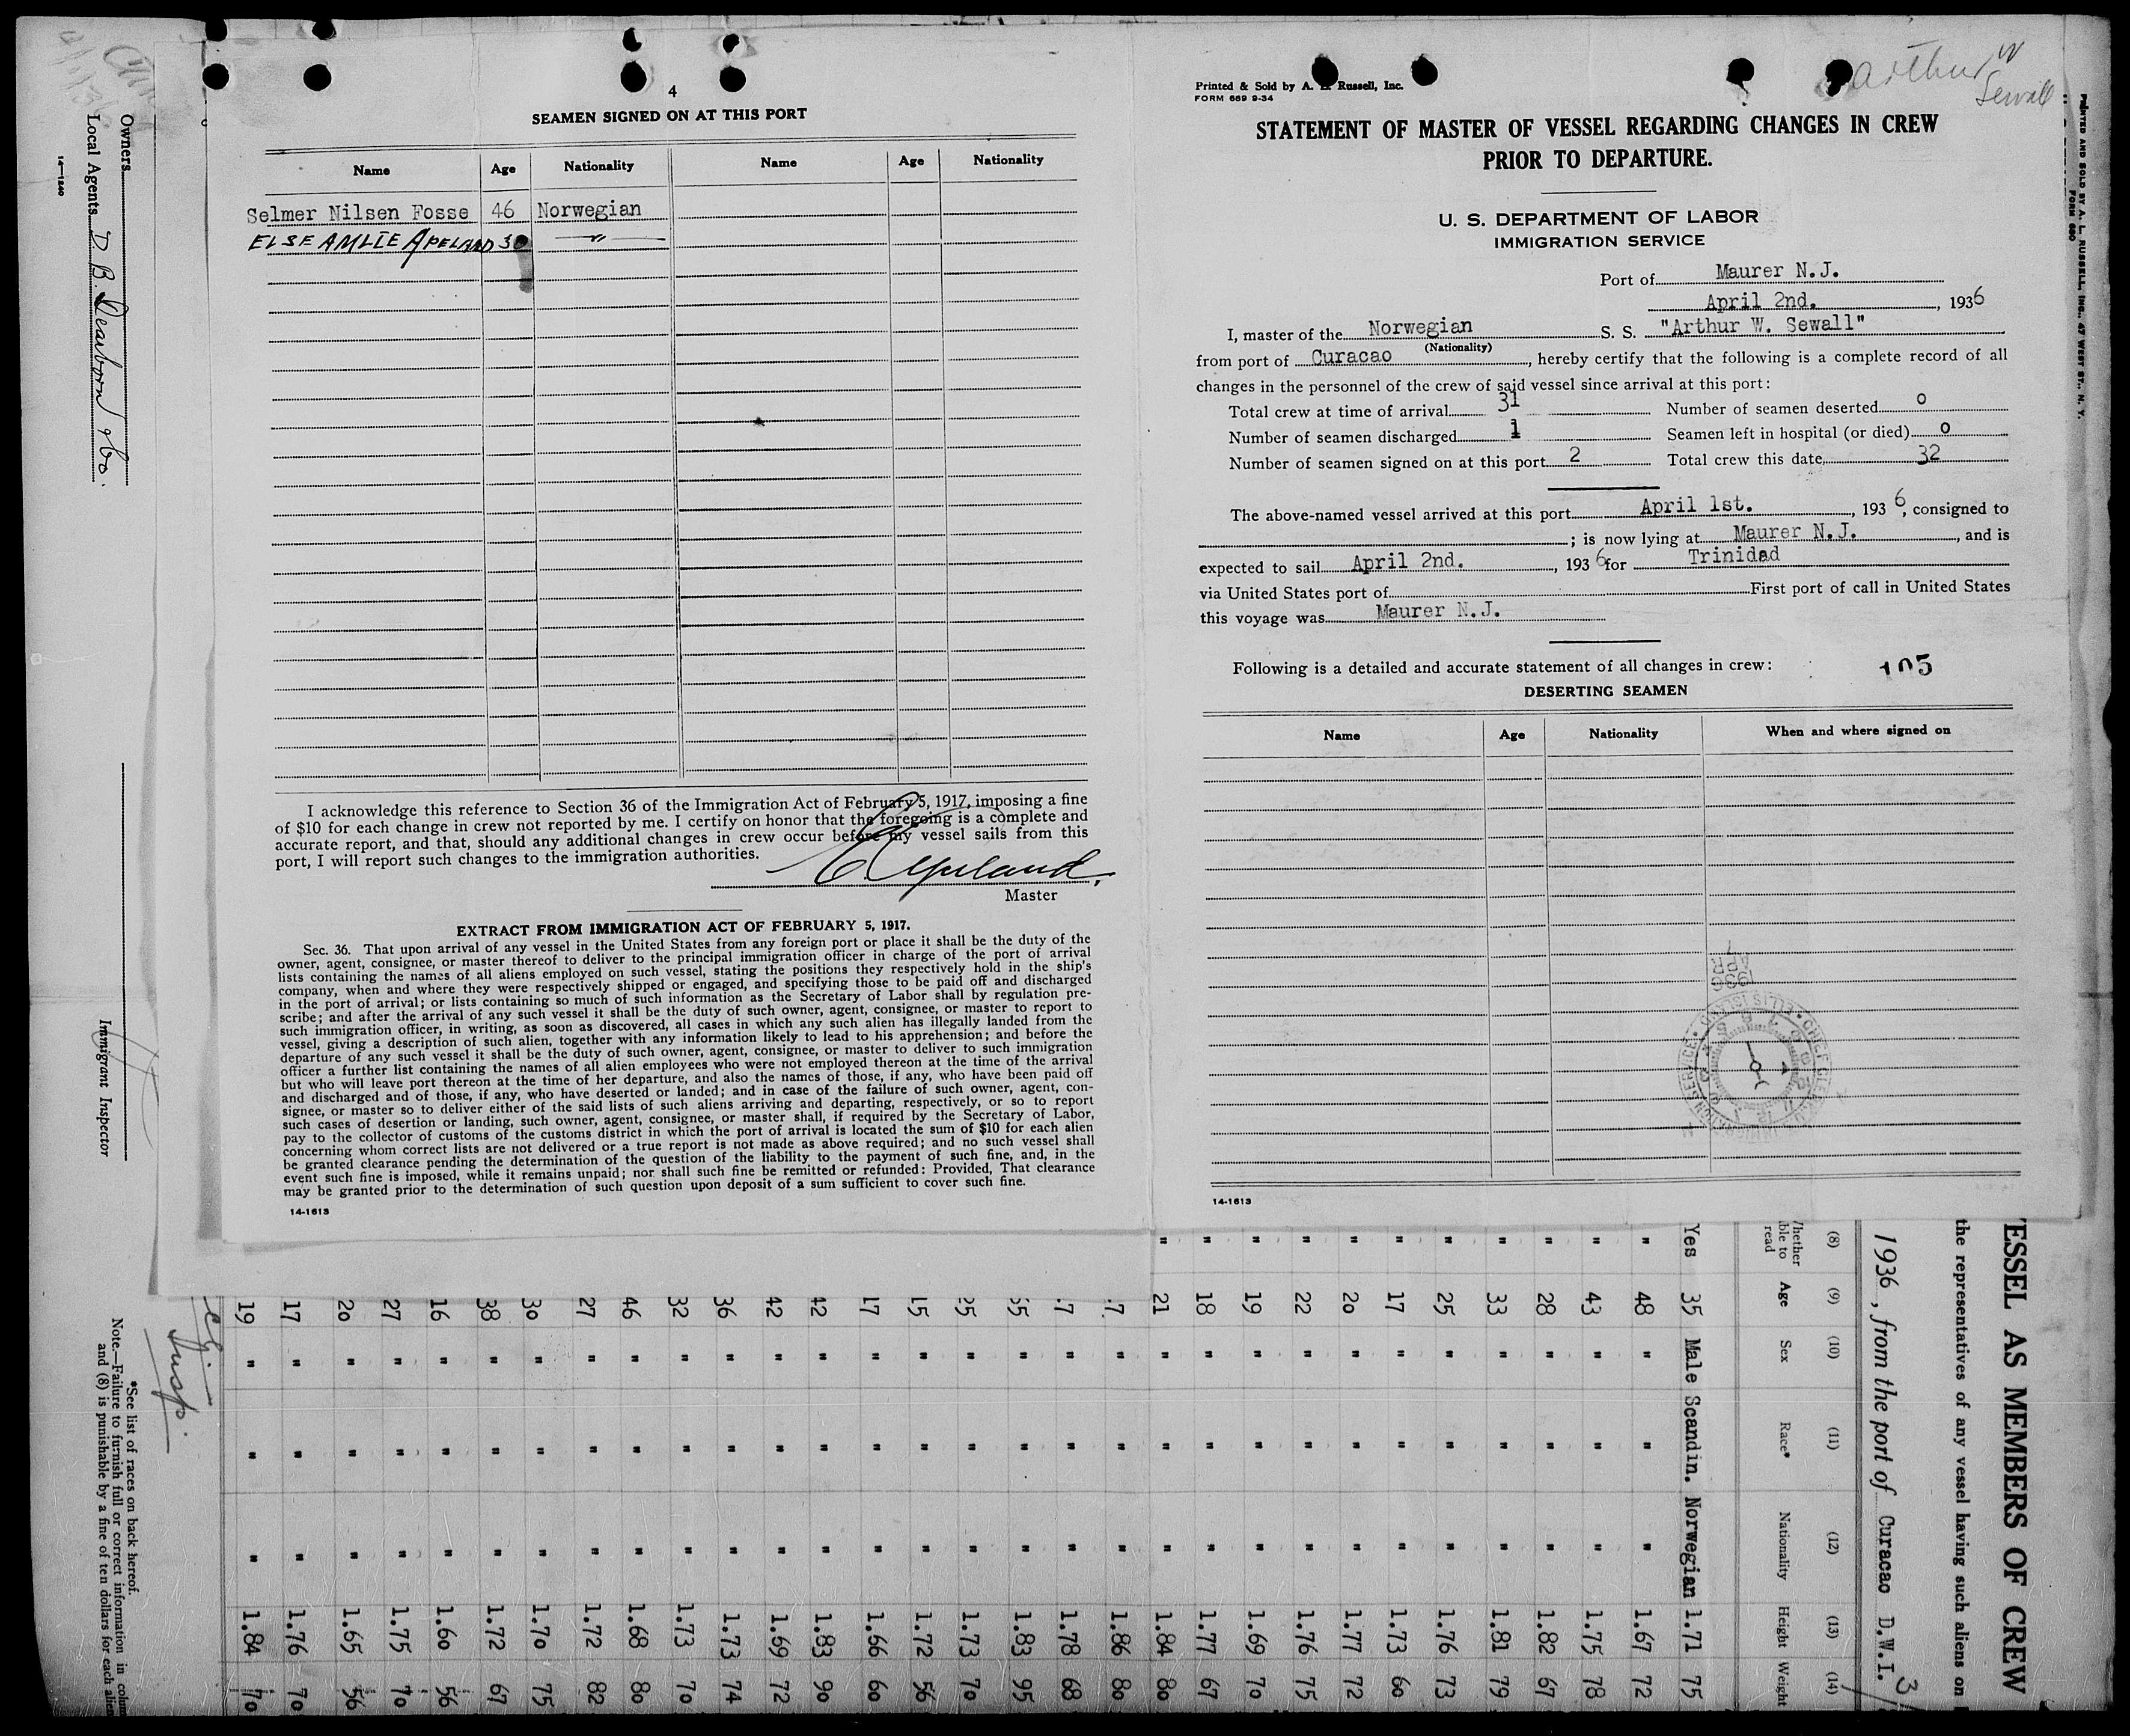 4
SEAMEN SIGNED ON AT THIS PORT
Name Age Nationality Name Age Nationality
Selmer Nilsen Fosse 46 Norwegian
ELSE AMLIE APELAND 30 "
I acknowledge this reference to Section 36 of the Immigration Act of February 5, 1917, imposing a fine
of $10 for each change in crew not reported by me. I certify on honor that the foregoing is a complete and
accurate report, and that, should any additional changes in crew occur before my vessel sails from this
port, I will report such changes to the immigration authorities.
Apeland.
Master
EXTRACT FROM IMMIGRATION ACT OF FEBRUARY 5, 1917.
Sec. 36. That upon arrival of any vessel in the United States from any foreign port or place it shall be the duty of the
owner, agent, consignee, or master thereof to deliver to the principal immigration officer in charge of the port of arrival
lists containing the names of all aliens employed on such vessel, stating the positions they respectively hold in the ship's
company, when and where they were respectively shipped or engaged, and specifying those to be paid off and discharged
in the port of arrival; or lists containing so much of such information as the Secretary of Labor shall by regulation pre-
scribe; and after the arrival of any such vessel it shall be the duty of such owner, agent, consignee, or master to report to
such immigration officer, in writing, as soon as discovered, all cases in which any such alien has illegally landed from the
vessel, giving a description of such alien, together with any information likely to lead to his apprehension; and before the
departure of any such vessel it shall be the duty of such owner, agent, consignee, or master to deliver to such immigration
officer a further list containing the names of all alien employees who were not employed thereon at the time of the arrival
but who will leave port thereon at the time of her departure, and also the names of those, if any, who have been paid off
and discharged and of those, if any, who have deserted or landed; and in case of the failure of such owner, agent, con-
signee, or master so to deliver either of the said lists of such aliens arriving and departing, respectively, or so to report
such cases of desertion or landing, such owner, agent, consignee, or master shall, if required by the Secretary of Labor,
pay to the collector of customs of the customs district in which the port of arrival is located the sum of $10 for each alien
concerning whom correct lists are not delivered or a true report is not made as above required; and no such vessel shall
be granted clearance pending the determination of the question of the liability to the payment of such fine, and, in the
event such fine is imposed, while it remains unpaid; nor shall such fine be remitted or refunded: Provided, That clearance
may be granted prior to the determination of such question upon deposit of a sum sufficient to cover such fine.
14-1613
Arthur W
Sewall
Printed & Sold by A. L. Russell, Inc.
FORM 689 9-34
STATEMENT OF MASTER OF VESSEL REGARDING CHANGES IN CREW
PRIOR TO DEPARTURE.
U. S. DEPARTMENT OF LABOR
IMMIGRATION SERVICE
Port of Maurer N.J.
April 2nd. , 1936
I, master of the Norwegian S. S. "Arthur W. Sewall"
(Nationality)
from port of Curacao , hereby certify that the following is a complete record of all
changes in the personnel of the crew of said vessel since arrival at this port:
Total crew at time of arrival 31 Number of seamen deserted 0
Number of seamen discharged 1 Seamen left in hospital (or died) 0
Number of seamen signed on at this port 2 Total crew this date, 32
The above-named vessel arrived at this port April 1st. , 1936, consigned to
; is now lying at Maurer N.J. , and is
expected to sail April 2nd. , 1936 for Trinidad
via United States port of First port of call in United States
this voyage was Maurer N.J.
Following is a detailed and accurate statement of all changes in crew: 105
DESERTING SEAMEN
Name Age Nationality When and where signed on
1936
APR
7
14-1613
PRINTED AND SOLD BY A. L. RUSSELL, INC., 47 WEST ST., N. Y.
FORM 680
Owners
Local Agents D. B. Dearborn & Co.
14-1240
Immigrant Inspector
*See list of races on back hereof.
Note.—Failure to furnish full or correct information in colum
and (8) is punishable by a fine of ten dollars for each alien
ESSEL AS MEMBERS OF CREW
the representatives of any vessel having such aliens on
1936, from the port of Curacao D.W.I. 3
(8) (9) (10) (11) (12) (13) (14)
Whether able to read Age Sex Race* Nationality Height Weight
Yes 35 Male Scandin. Norwegian 1.71 75
" 48 " " " 1.67 72
" 43 " " " 1.75 78
" 28 " " " 1.82 67
" 33 " " " 1.81 79
" 25 " " " 1.76 73
" 17 " " " 1.73 60
" 20 " " " 1.77 72
" 22 " " " 1.76 75
" 19 " " " 1.69 70
" 18 " " " 1.77 67
" 21 " " " 1.84 80
7 " " " 1.86 80
7 " " " 1.78 68
55 " " " 1.83 95
25 " " " 1.73 70
15 " " " 1.72 56
17 " " " 1.66 60
42 " " " 1.83 90
42 " " " 1.69 72
36 " " " 1.73 74
32 " " " 1.73 70
46 " " " 1.68 80
27 " " " 1.72 82
30 " " " 1.70 75
38 " " " 1.72 67
16 " " " 1.60 56
27 " " " 1.75 70
20 " " " 1.65 56
17 " " " 1.76 70
19 " " " 1.84 70